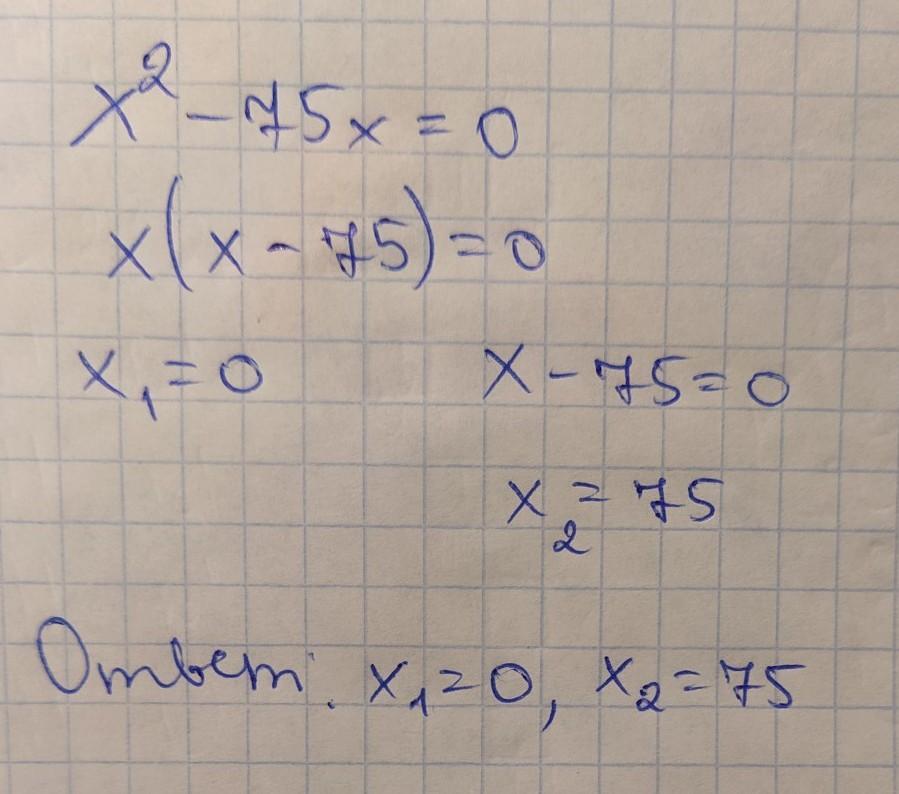 x² - 75x = 0
x(x - 75) = 0
x₁ = 0    x - 75 = 0
x₂ = 75
Ответ: x₁ = 0, x₂ = 75